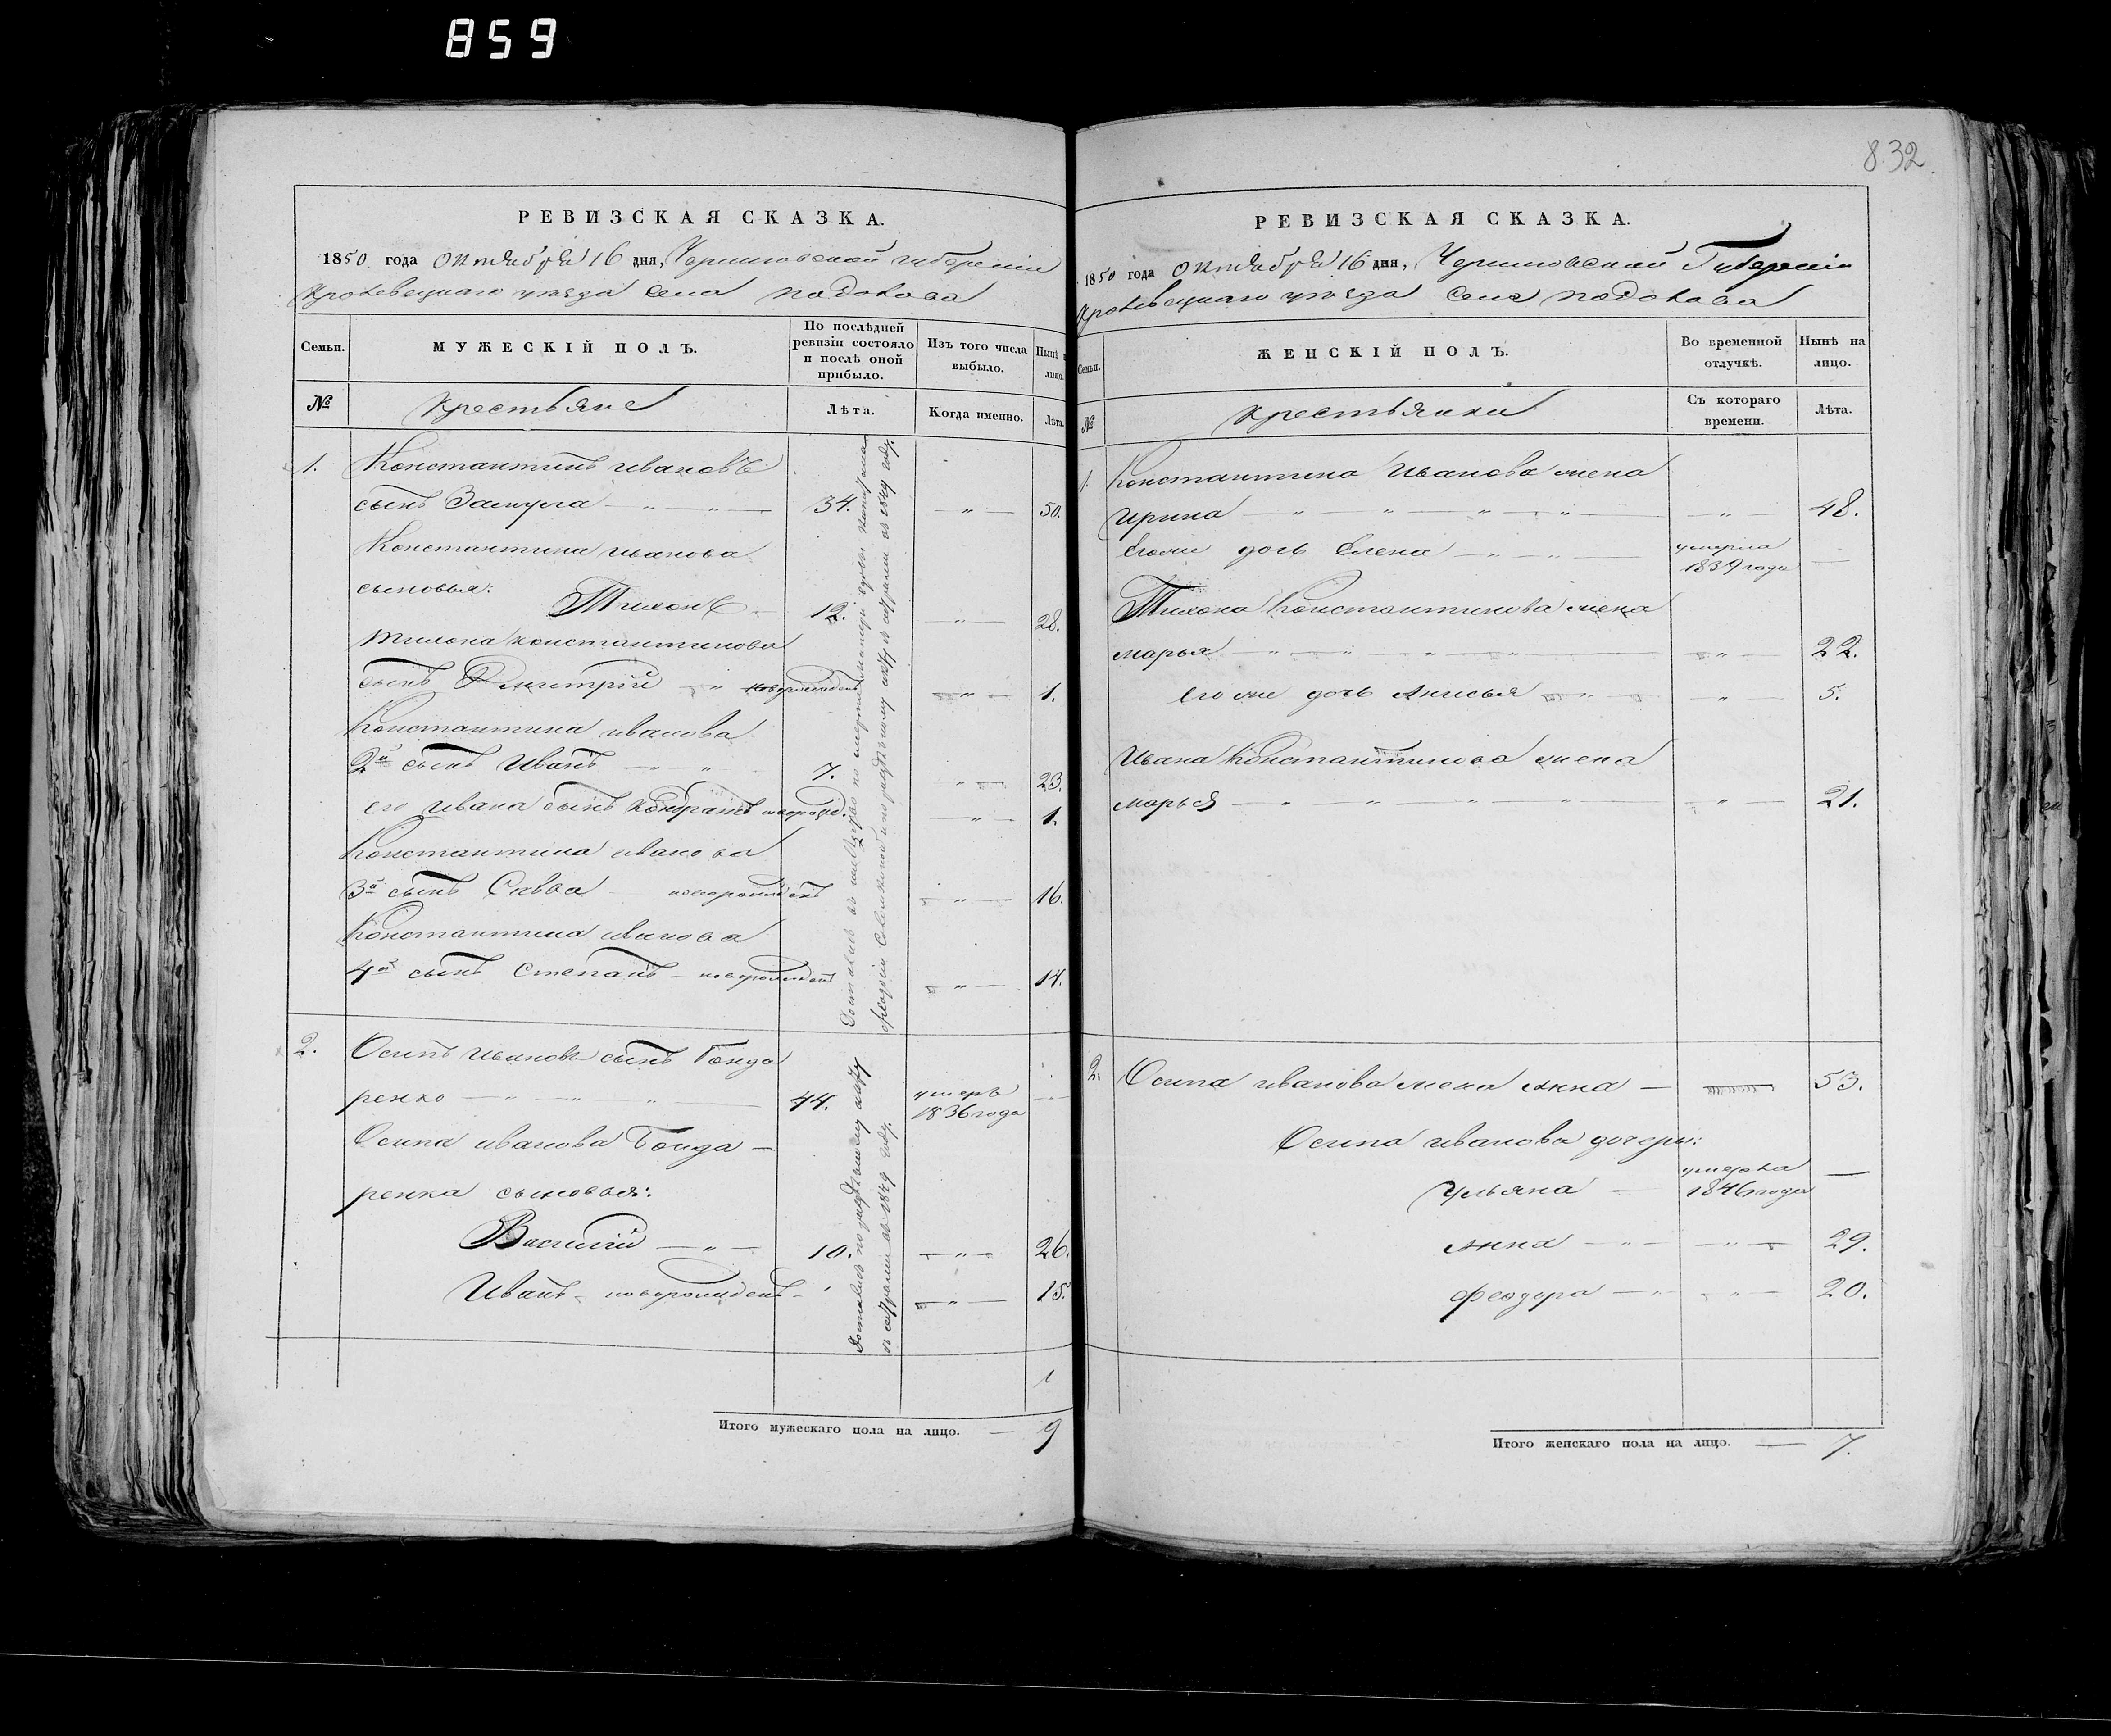 859
832
РЕВИЗСКАЯ СКАЗКА.
1850 года Октября 16 дня, Черниговской губернiи
Кролевецкаго уезда Села Подолова
Семьи.
МУЖЕСКIЙ ПОЛЪ.
По послѣдней ревизiи состояло и послѣ оной прибыло.
Изъ того числа выбыло.
Нынѣ лицо.
№
Крестьяне
Лѣта.
Когда именно.
Лѣта.
1. Константинъ Ивановъ
сынъ Замула — „ — „ — 34. — „ — 50.
Константина Иванова
сыновья:
Тихонъ — 12. — „ — 28.
Тихона Константинова
сынъ Дмитрiй — „ новорожденъ — „ — 1.
Константина Иванова
2й сынъ Иванъ — „ — „ 7. „ — 23.
его Ивана сынъ Кондратъ новорожд. — „ — 1.
Константина Иванова
3й сынъ Савва — новорожденъ — „ — 16.
Константина Иванова
4й сынъ Степанъ — новорожденъ — „ — 14.
въ 1849 году.
2. Осипъ Ивановъ сынъ Бонда
ренко — „ — „ — „ — 44. умеръ —
1836 года
Осипа Иванова Бонда —
ренка сыновья:
Василiй — „ — 10. — „ — 26.
Иванъ — новорожденъ — „ — „ — 15.
Достались по раздѣльному акту
въ 1849 году.
1
Итого мужескаго пола на лицо. — 9
РЕВИЗСКАЯ СКАЗКА.
1850 года Октября 16 дня, Черниговской Губернiи
Кролевецкаго уезда Села Подолова
Семьи.
ЖЕНСКIЙ ПОЛЪ.
Во временной отлучкѣ.
Нынѣ на лицо.
№
Крестьянки
Съ котораго времени.
Лѣта.
1. Константина Иванова жена
Ирина — „ — „ — „ — „ — — „ — 48.
Егоже дочь Елена — „ — „ — умерла —
1839 года
Тихона Константинова жена
Марья — „ — „ — „ — „ — — „ — 22.
Егоже дочь Анисья — „ — „ 5.
Ивана Константинова жена
Марья — „ — „ — „ — „ — „ — 21.
2. Осипа Иванова жена Анна — 53.
Осипа Иванова дочери:
умерла
Ульяна — 1846 года —
Анна — „ — — „ — 29.
Феодора — „ — „ — 20.
Итого женскаго пола на лицо. — 7.